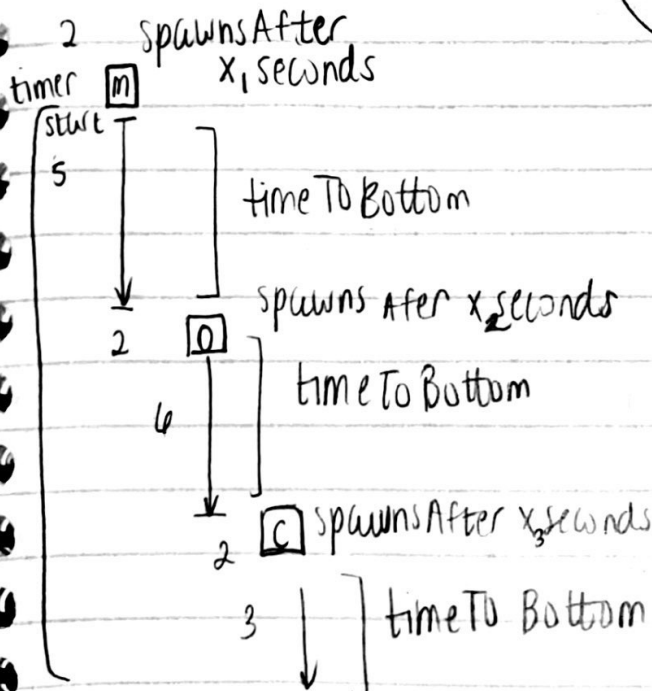 2 spawnsAfter
x₁ seconds
timer m
start
5
timeToBottom
spawns Afer x₂ seconds
2 O
timeToBottom
6
C spawnsAfter x₃ seconds
2
3 timeTo Bottom